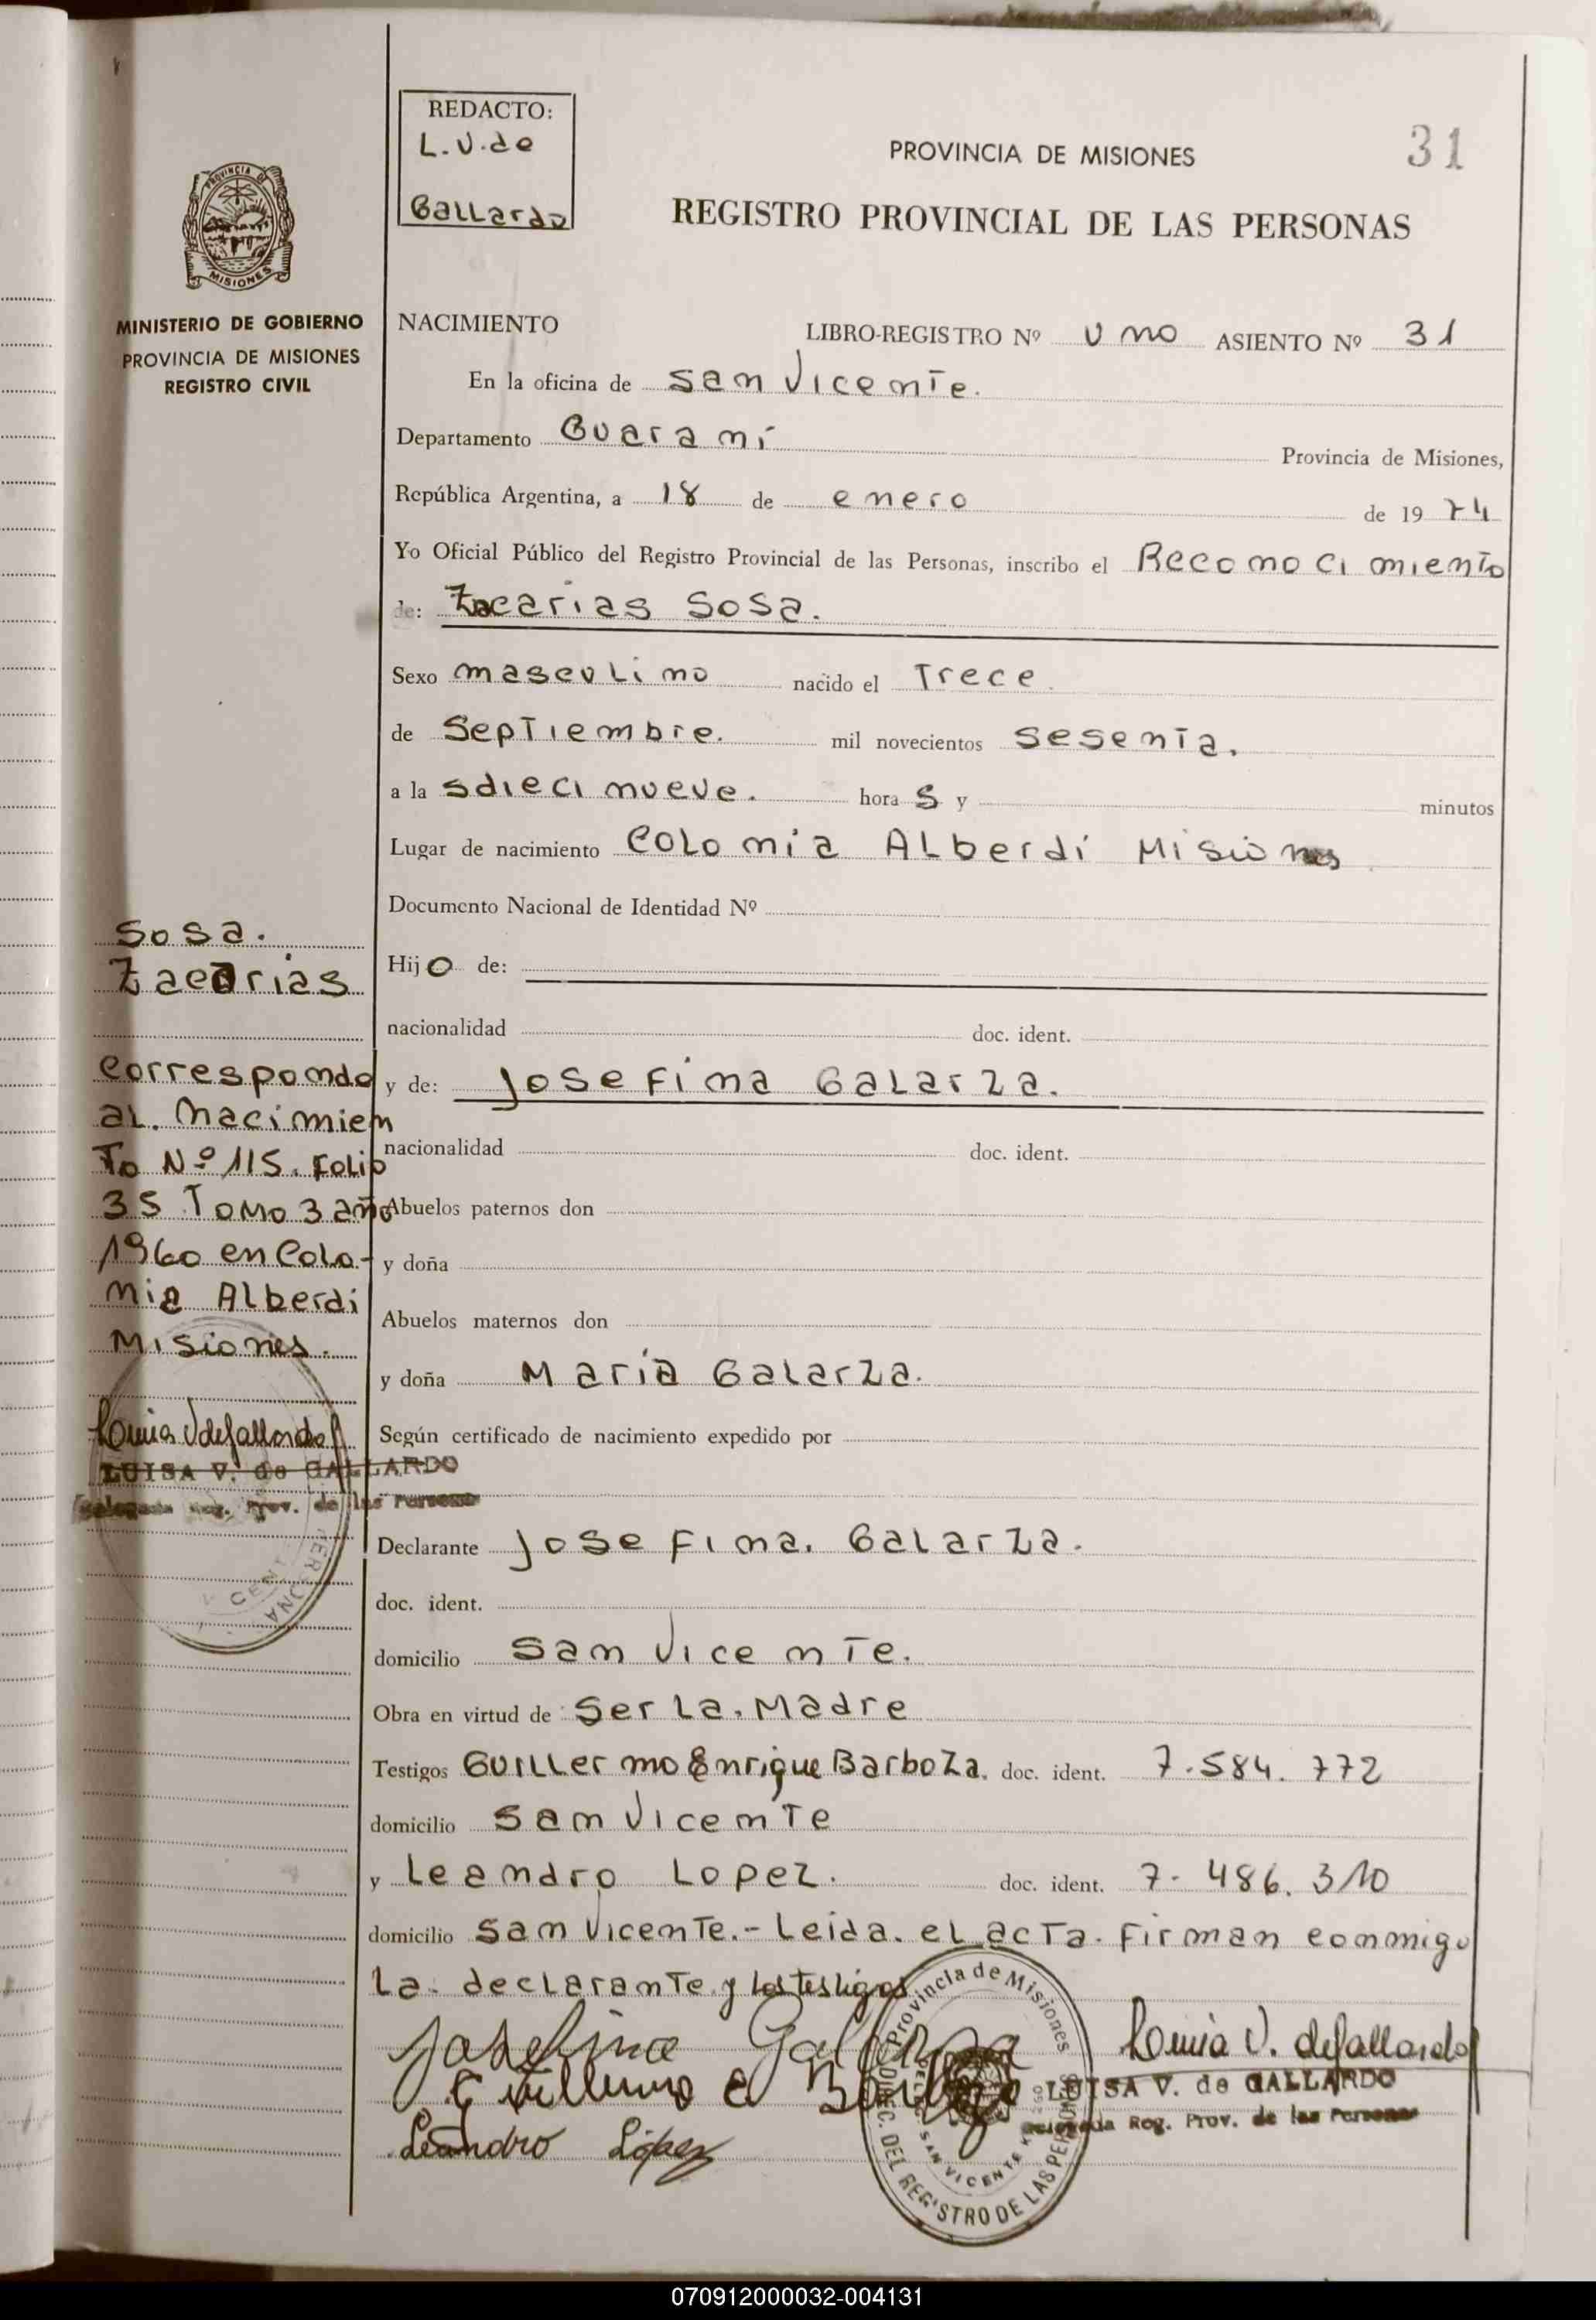 REDACTO:
L.V. de
Gallardo
PROVINCIA DE MISIONES
31
REGISTRO PROVINCIAL DE LAS PERSONAS
PROVINCIA DE
MISIONES
MINISTERIO DE GOBIERNO
PROVINCIA DE MISIONES
REGISTRO CIVIL
NACIMIENTO
LIBRO-REGISTRO Nº uno ASIENTO Nº 31
En la oficina de San Vicente.
Departamento Guaraní Provincia de Misiones,
República Argentina, a 18 de enero de 1974
Yo Oficial Público del Registro Provincial de las Personas, inscribo el Reconocimiento
de: Zacarias Sosa.
Sexo masculino nacido el Trece
de Septiembre. mil novecientos sesenta.
a la s diecinueve. hora s y minutos
Lugar de nacimiento Colonia Alberdi Misiones
Documento Nacional de Identidad Nº
Hijo de:
nacionalidad doc. ident.
y de: Josefina Galarza.
nacionalidad doc. ident.
Abuelos paternos don
y doña
Abuelos maternos don
y doña Maria Galarza.
Según certificado de nacimiento expedido por
Declarante Josefina. Galarza.
doc. ident.
domicilio San Vicente.
Obra en virtud de Ser la. Madre
Testigos Guillermo Enrique Barboza. doc. ident. 7.584.772
domicilio San Vicente
y Leandro Lopez. doc. ident. 7.486.310
domicilio San Vicente.- Leida. el acta. firman conmigo
la declarante y los testigos
Sosa.
Zacarias
Corresponde
al. Nacimien
To Nº 115. Folio
35 Tomo 3 año
1960 en Colo-
nia Alberdi
Misiones.
Luisa V de Gallardo
LUISA V. de GALLARDO
Delegada Reg. Prov. de las Personas
Josefina Galarza
Guillermo E Barboza
Leandro López
Luisa V. de Gallardo
LUISA V. de GALLARDO
Delegada Reg. Prov. de las Personas
Provincia de Misiones
DIREC. DEL REGISTRO DE LAS PERSONAS
SAN VICENTE
070912000032-004131